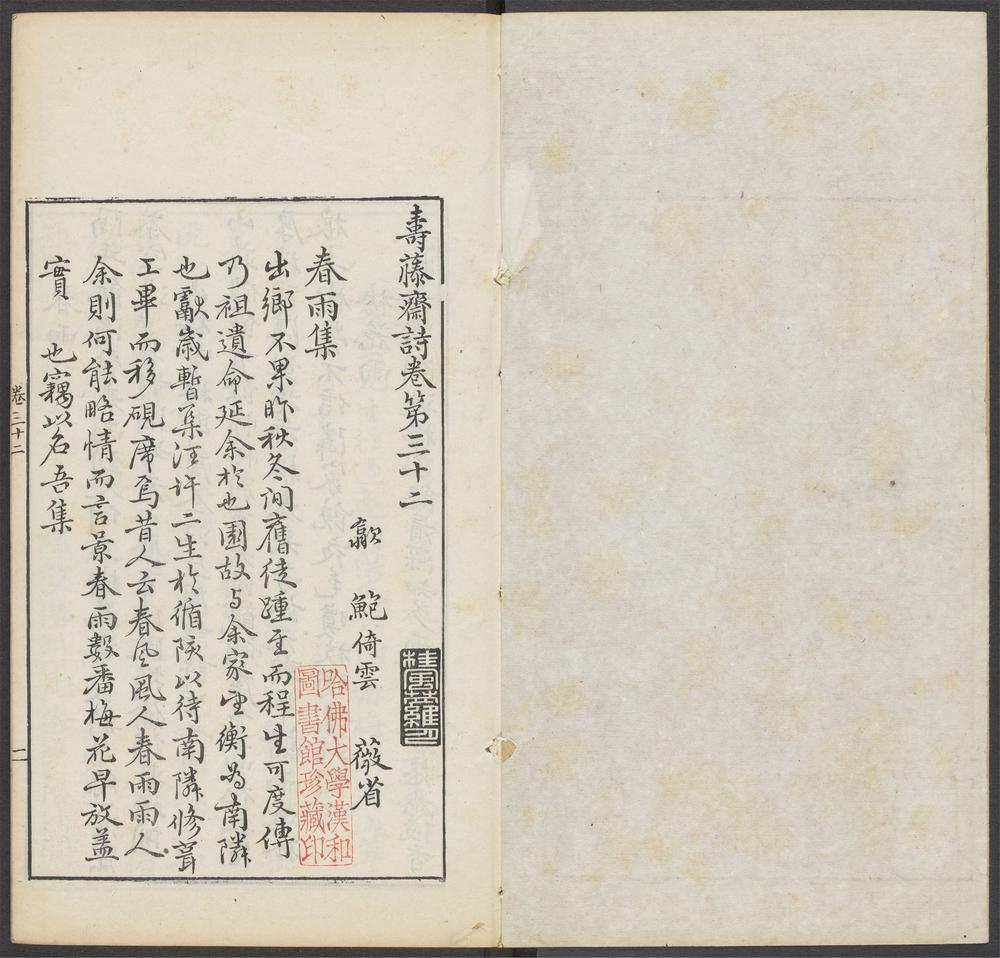 壽藤齋詩卷第三十二
歙 鮑倚雲 薇省
春雨集
出鄉不果昨秋冬間舊徒踵至而程生可度傳
乃祖遺命延余於也園故与余家望衡為南隣
也獻歲暫集汪許二生於循陔以待南隣修葺
工畢而移硯席焉昔人云春風風人春雨雨人
余則何能略情而言景春雨數番梅花早放蓋
實也竊以名吾集
卷三十二
一
哈佛大學漢和
圖書館珍藏印